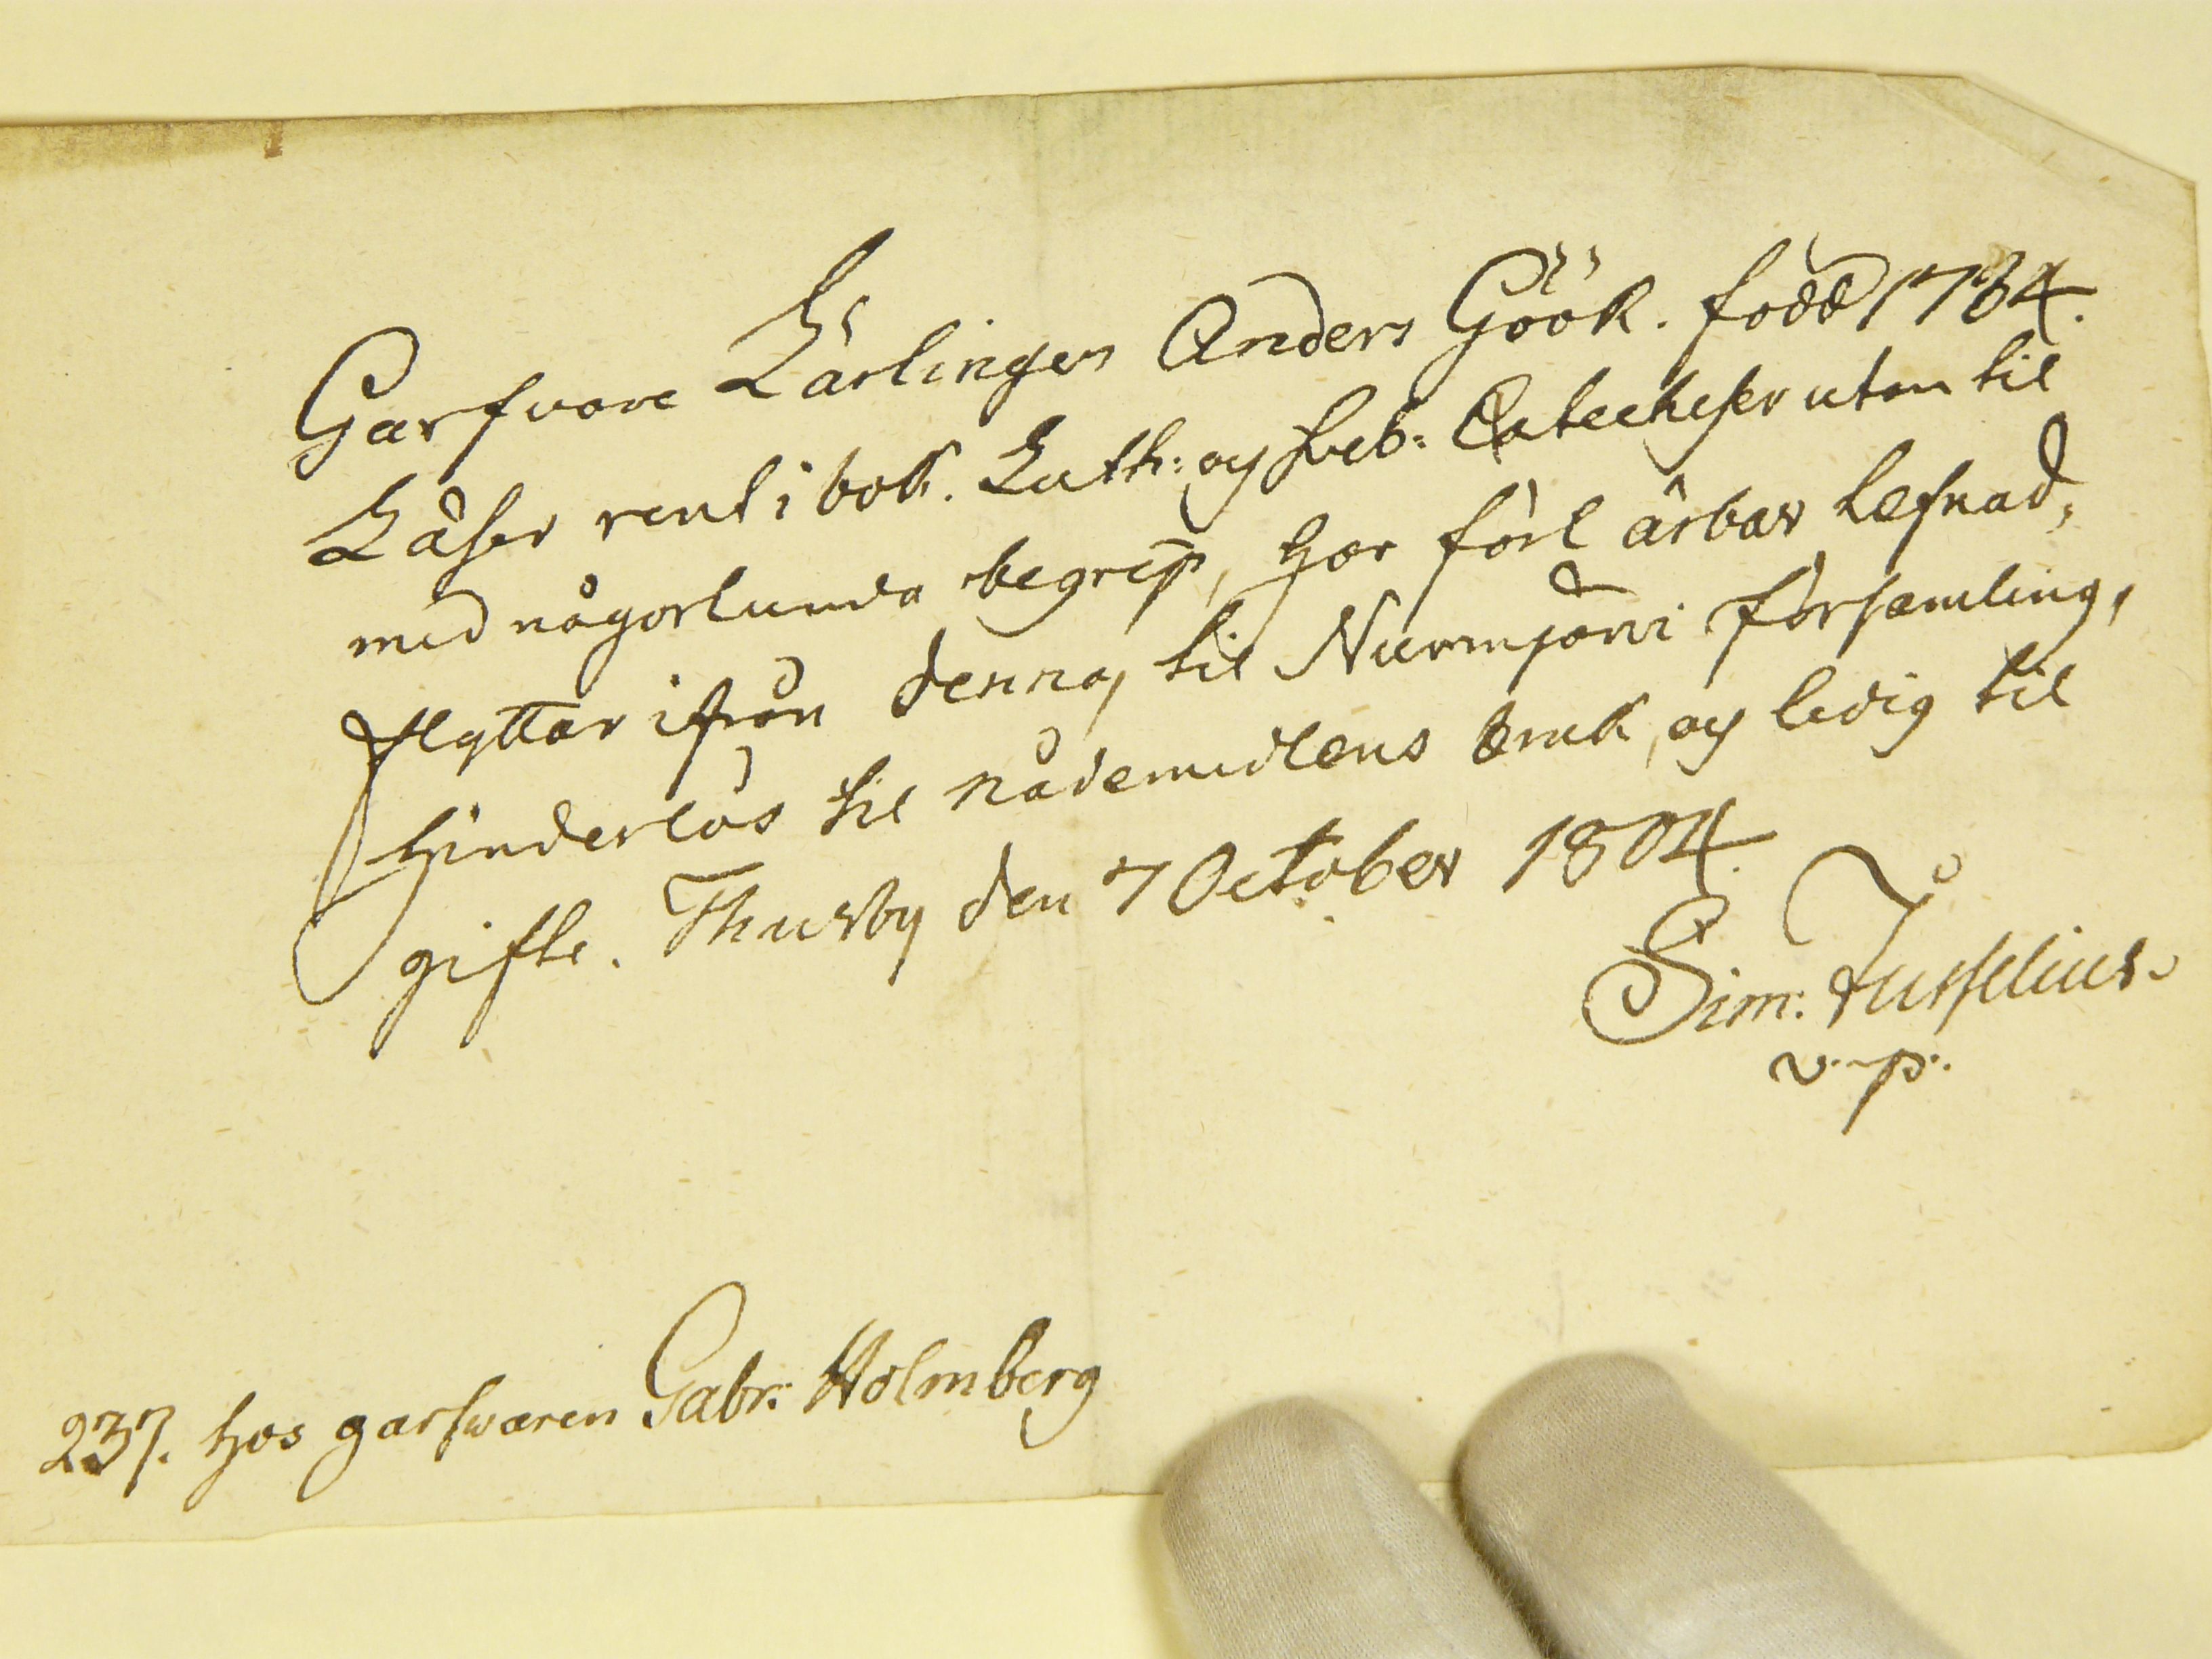 Garfvare Lärlingen Anders Göök. född 1784.
Läser rent i bok. Luth: og Sveb: Catecheser utan til
med någorlunda begrep, har fört ärbar lefnad,
flyttar ifrån denna, til Nurmjärvi församling,
hinderlös til nådemedlens bruk, og ledig til
gifte. Thusby den 7 October 1804.
Sim:
v. p.
237. hos garfwaren Gabr: Holmberg